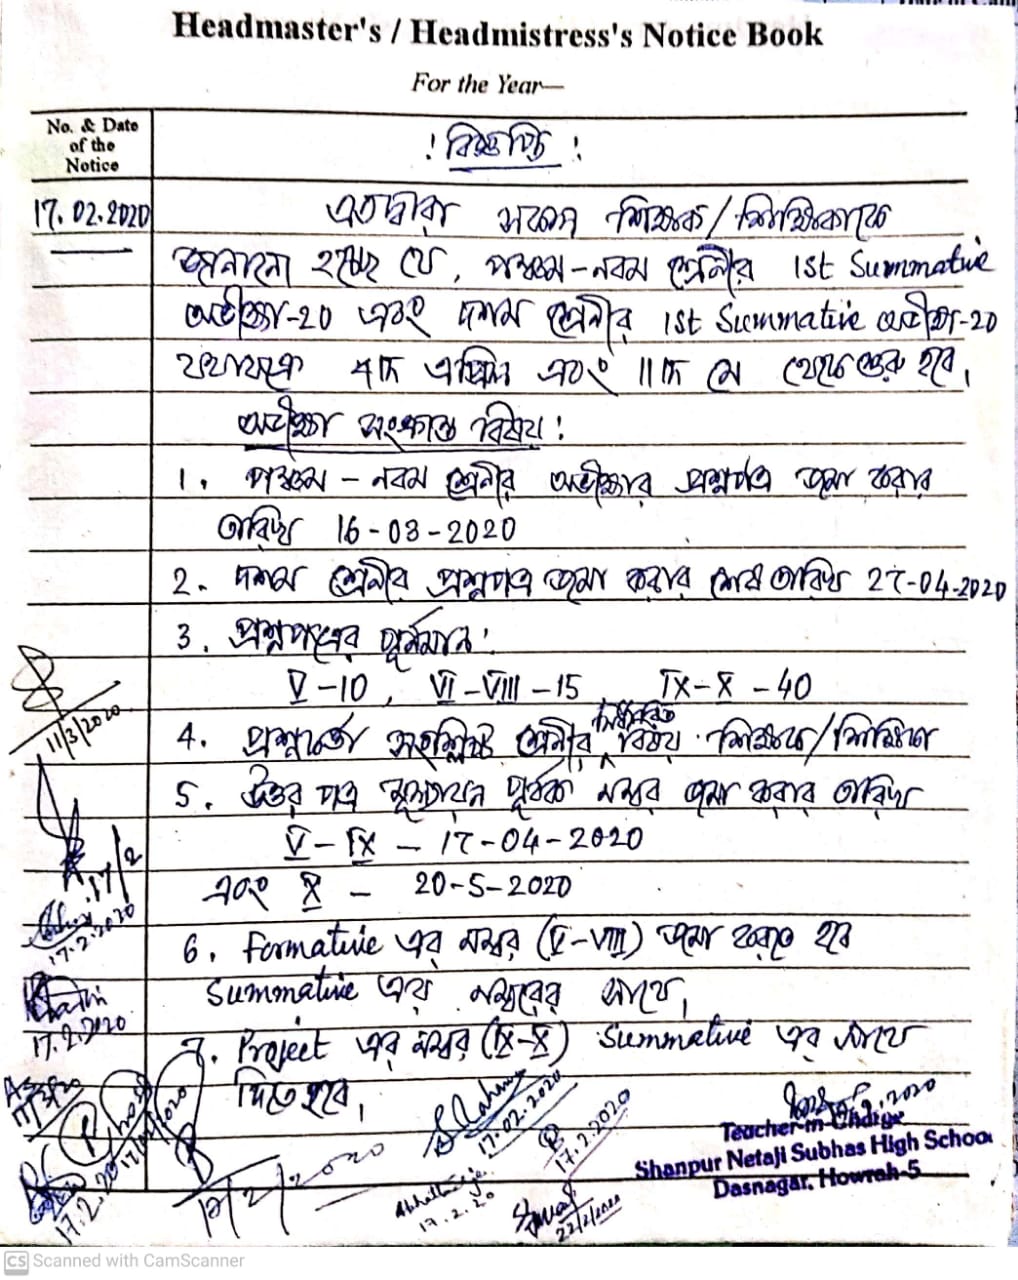 Headmaster's / Headmistress's Notice Book
For the Year—
No. & Date
of the
Notice
! বিজ্ঞপ্তি !
17.02.2020
এতদ্বারা সকল শিক্ষক/শিক্ষিকাকে
জানানো হচ্ছে যে, পঞ্চম-নবম শ্রেনীর 1st Summative
অভীক্ষা-20 এবং দশম শ্রেনীর 1st Summative অভীক্ষা-20
যথাক্রমে এপ্রিল এবং 11ই মে থেকে শুরু হবে।
অভীক্ষা সংক্রান্ত বিষয় :
1. পঞ্চম - নবম শ্রেনীর অভীক্ষার প্রশ্নপত্র জমা করার
তারিখ 16-03-2020
2. দশম শ্রেনীর প্রশ্নপত্র জমা করার শেষ তারিখ 27-04-2020
3. প্রশ্নপত্রের পূর্নমান :
V-10, VI-VIII-15, IX-X-40
4. প্রশ্নকর্তা সংশ্লিষ্ট শ্রেনীর নির্ধারিত বিষয় শিক্ষক/শিক্ষিকা
5. উত্তর পত্র মূল্যায়ন পূর্বক নম্বর জমা করার তারিখ
V-IX - 17-04-2020
এবং X - 20-5-2020
6. Formative এর নম্বর (V-VIII) জমা করতে হবে
Summative এর নম্বরের সাথে।
7. Project এর নম্বর (IX-X) Summative এর সাথে
দিতে হবে।
11/3/2020
17/2
17.2.2020
17.2.2020
17.02.2020
17.2.2020
17.2.20
22/2/2020
Teacher-in-Charge
Shanpur Netaji Subhas High School
Dasnagar, Howrah-5
CS Scanned with CamScanner